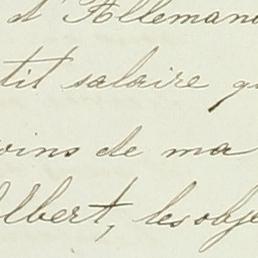 d'Allemand
tit salaire qu
oins de ma
Albert, les obje